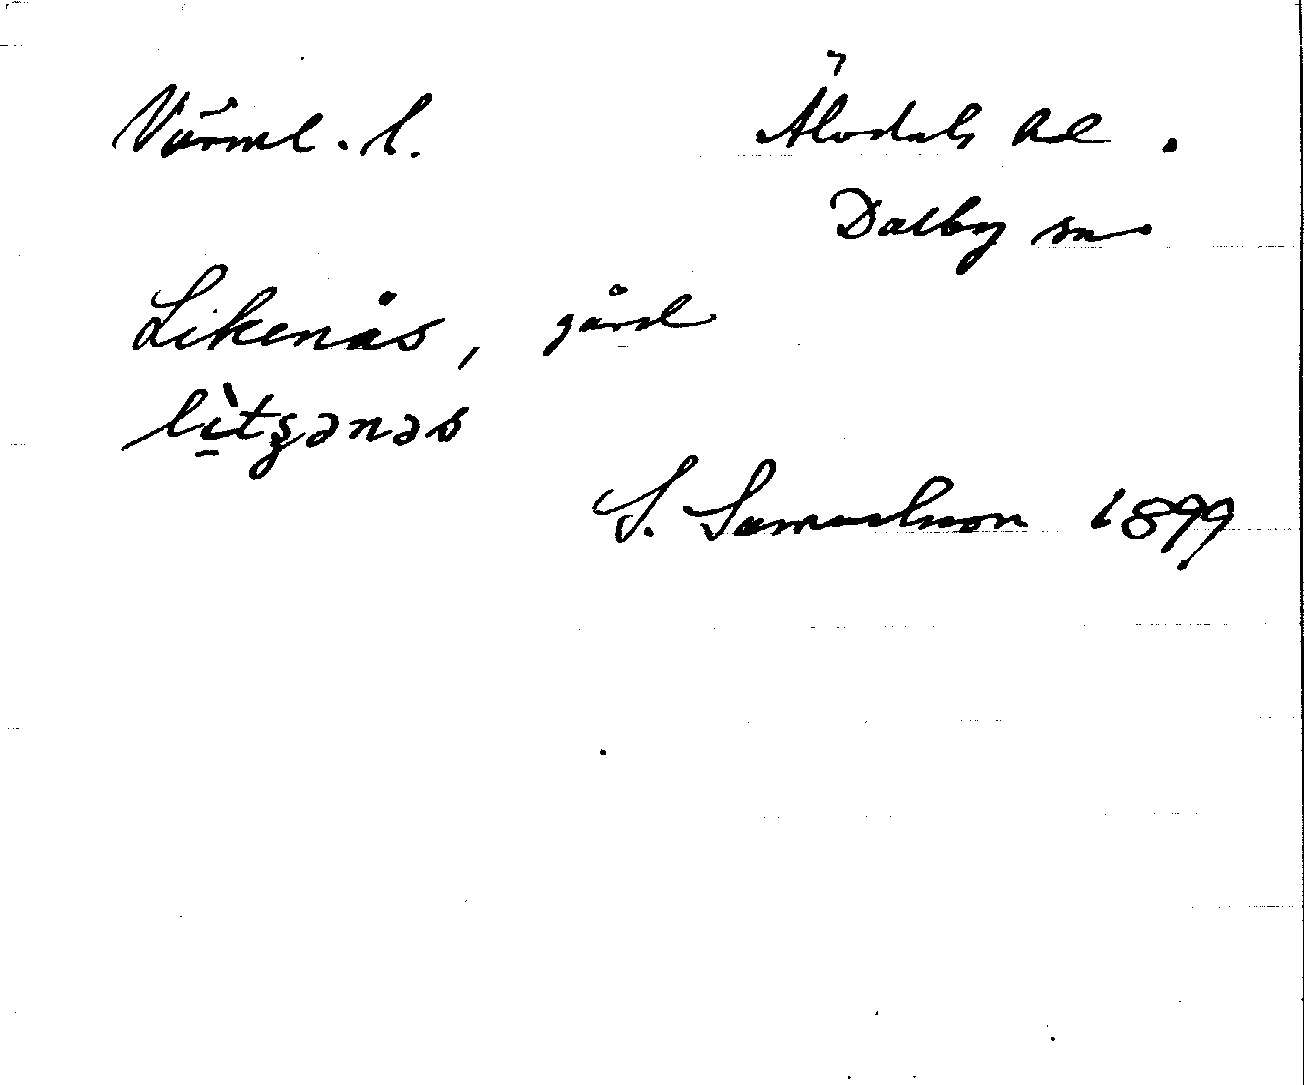 Värml. l.
Älvdals hd.
Dalby sn.
Likenäs, gård
lìtʂənəs
S. Samuelsson 1899